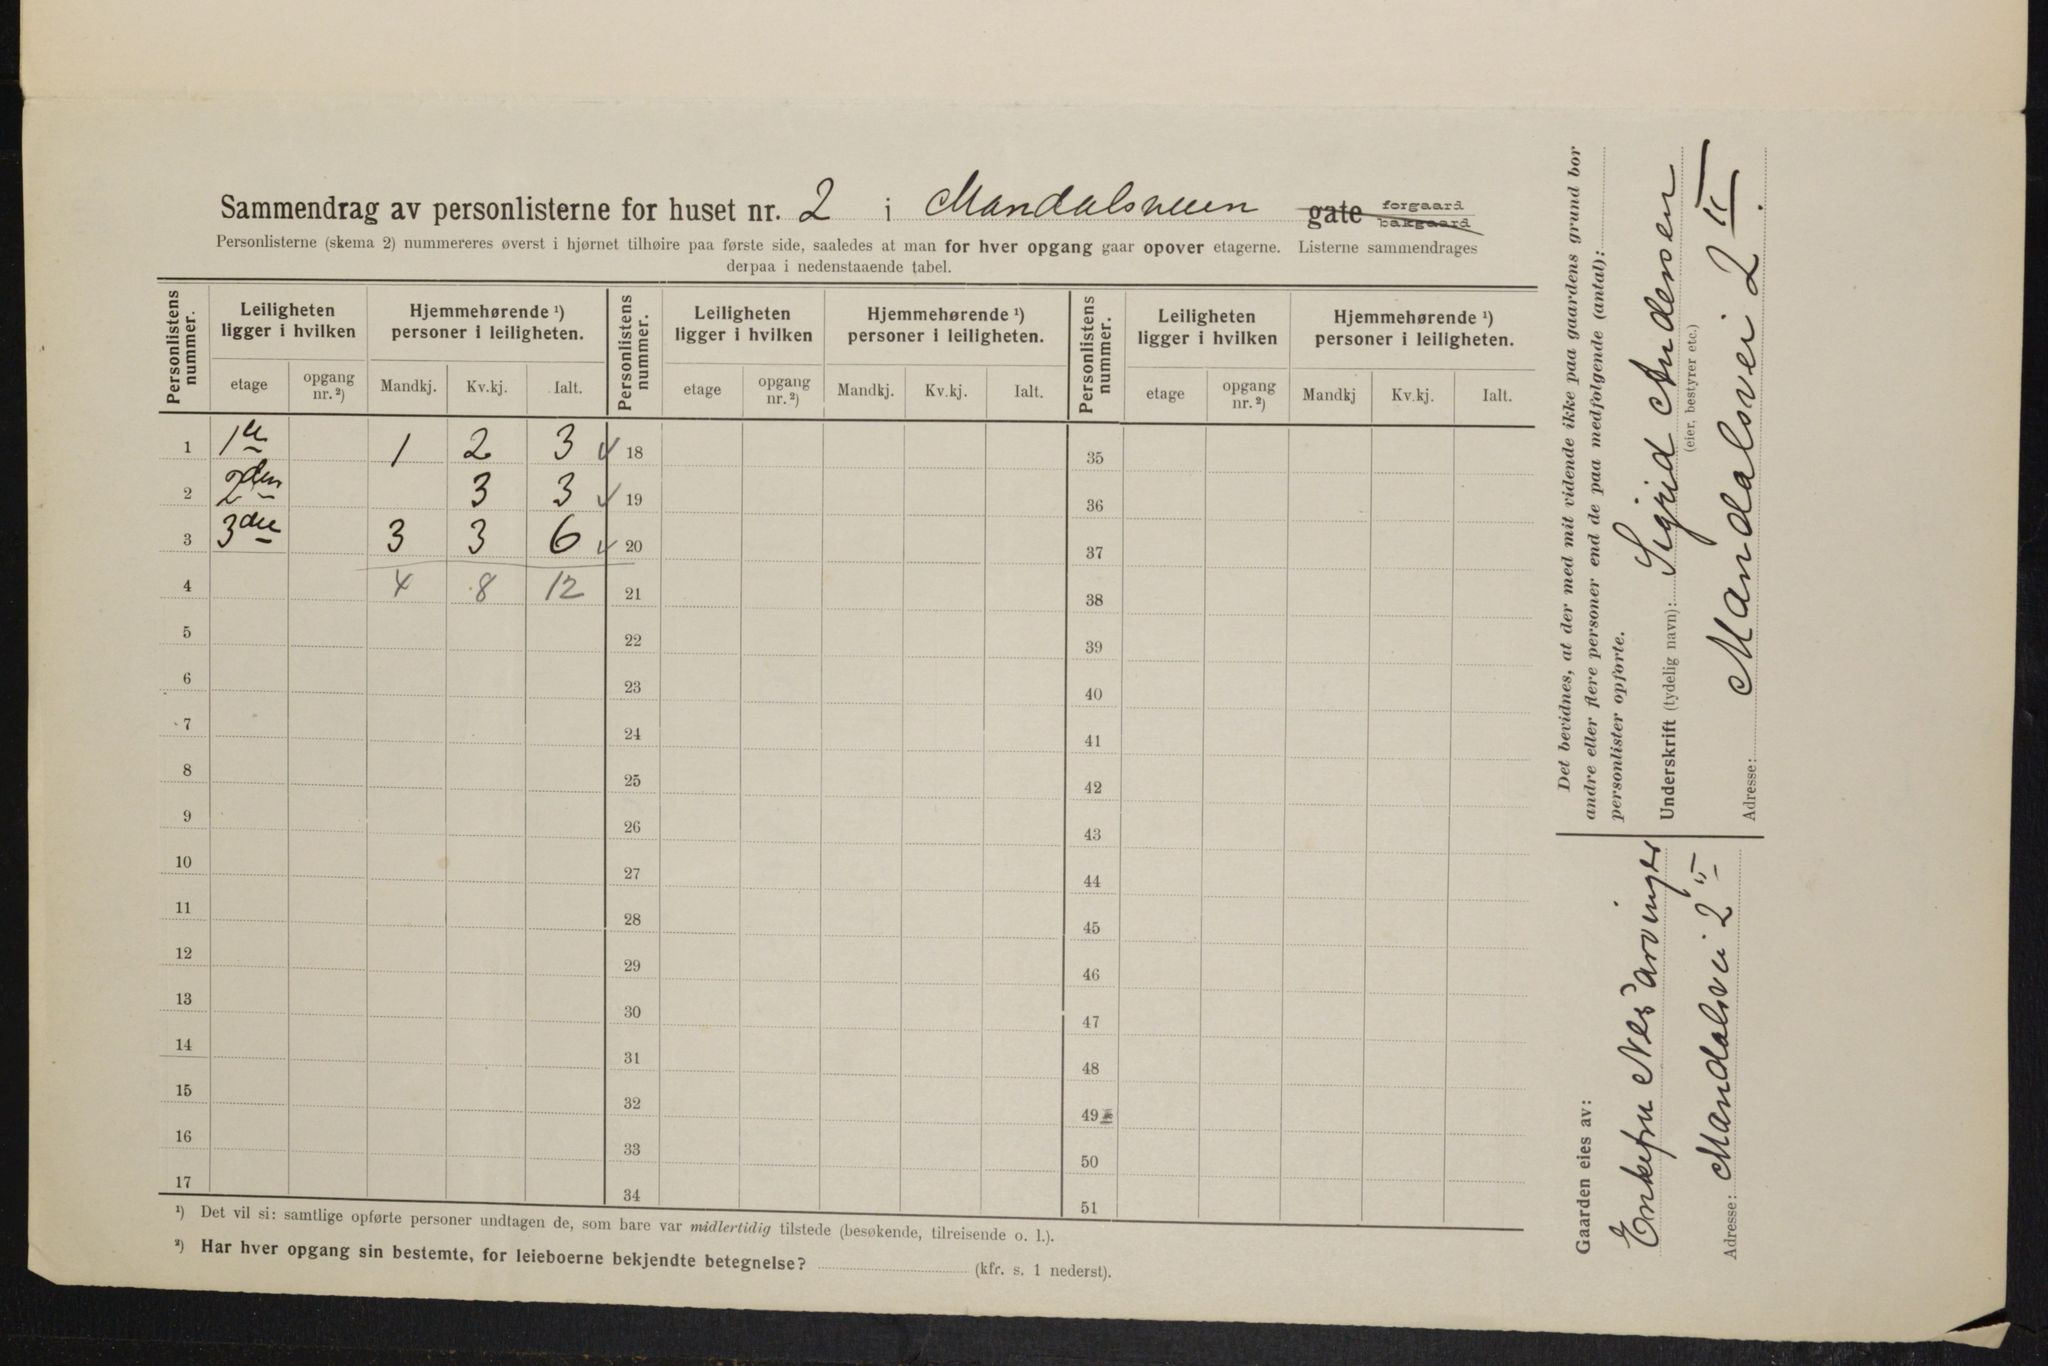 Sammendrag av personlisterne for huset nr. 2 i Mandalsveien gate forgaard bakgaard
Personlisterne (skema 2) nummereres øverst i hjørnet tilhøire paa første side, saaledes at man for hver opgang gaar opover etagerne. Listerne sammendrages
derpaa i nedenstaaende tabel.
Personlistens nummer. Leiligheten ligger i hvilken Hjemmehørende ¹) personer i leiligheten. Personlistens nummer. Leiligheten ligger i hvilken Hjemmehørende ¹) personer i leiligheten. Personlistens nummer. Leiligheten ligger i hvilken Hjemmehørende ¹) personer i leiligheten.
etage opgang nr. ²) Mandkj. Kv.kj. Ialt. etage opgang nr. ²) Mandkj. Kv.kj. Ialt. etage opgang nr. ²) Mandkj Kv.kj. Ialt.
1 1ste 1 2 3 18 35
2 2den 3 3 19 36
3 3die 3 3 6 20 37
4 4 8 12 21 38
5 22 39
6 23 40
7 24 41
8 25 42
9 26 43
10 27 44
11 28 45
12 29 46
13 30 47
14 31 48
15 32 49
16 33 50
17 34 51
¹) Det vil si: samtlige opførte personer undtagen de, som bare var midlertidig tilstede (besøkende, tilreisende o. l.).
²) Har hver opgang sin bestemte, for leieboerne bekjendte betegnelse? (kfr. s. 1 nederst).
Det bevidnes, at der med mit vidende ikke paa gaardens grund bor
andre eller flere personer end de paa medfølgende (antal):
personlister opførte.
Underskrift (tydelig navn): Sigrid Andensen
(eier, bestyrer etc.)
Adresse: Mandalsvei 2 II
Gaarden eies av:
Enkefru Nes' arvinger
Adresse: Mandalsvei 2 II